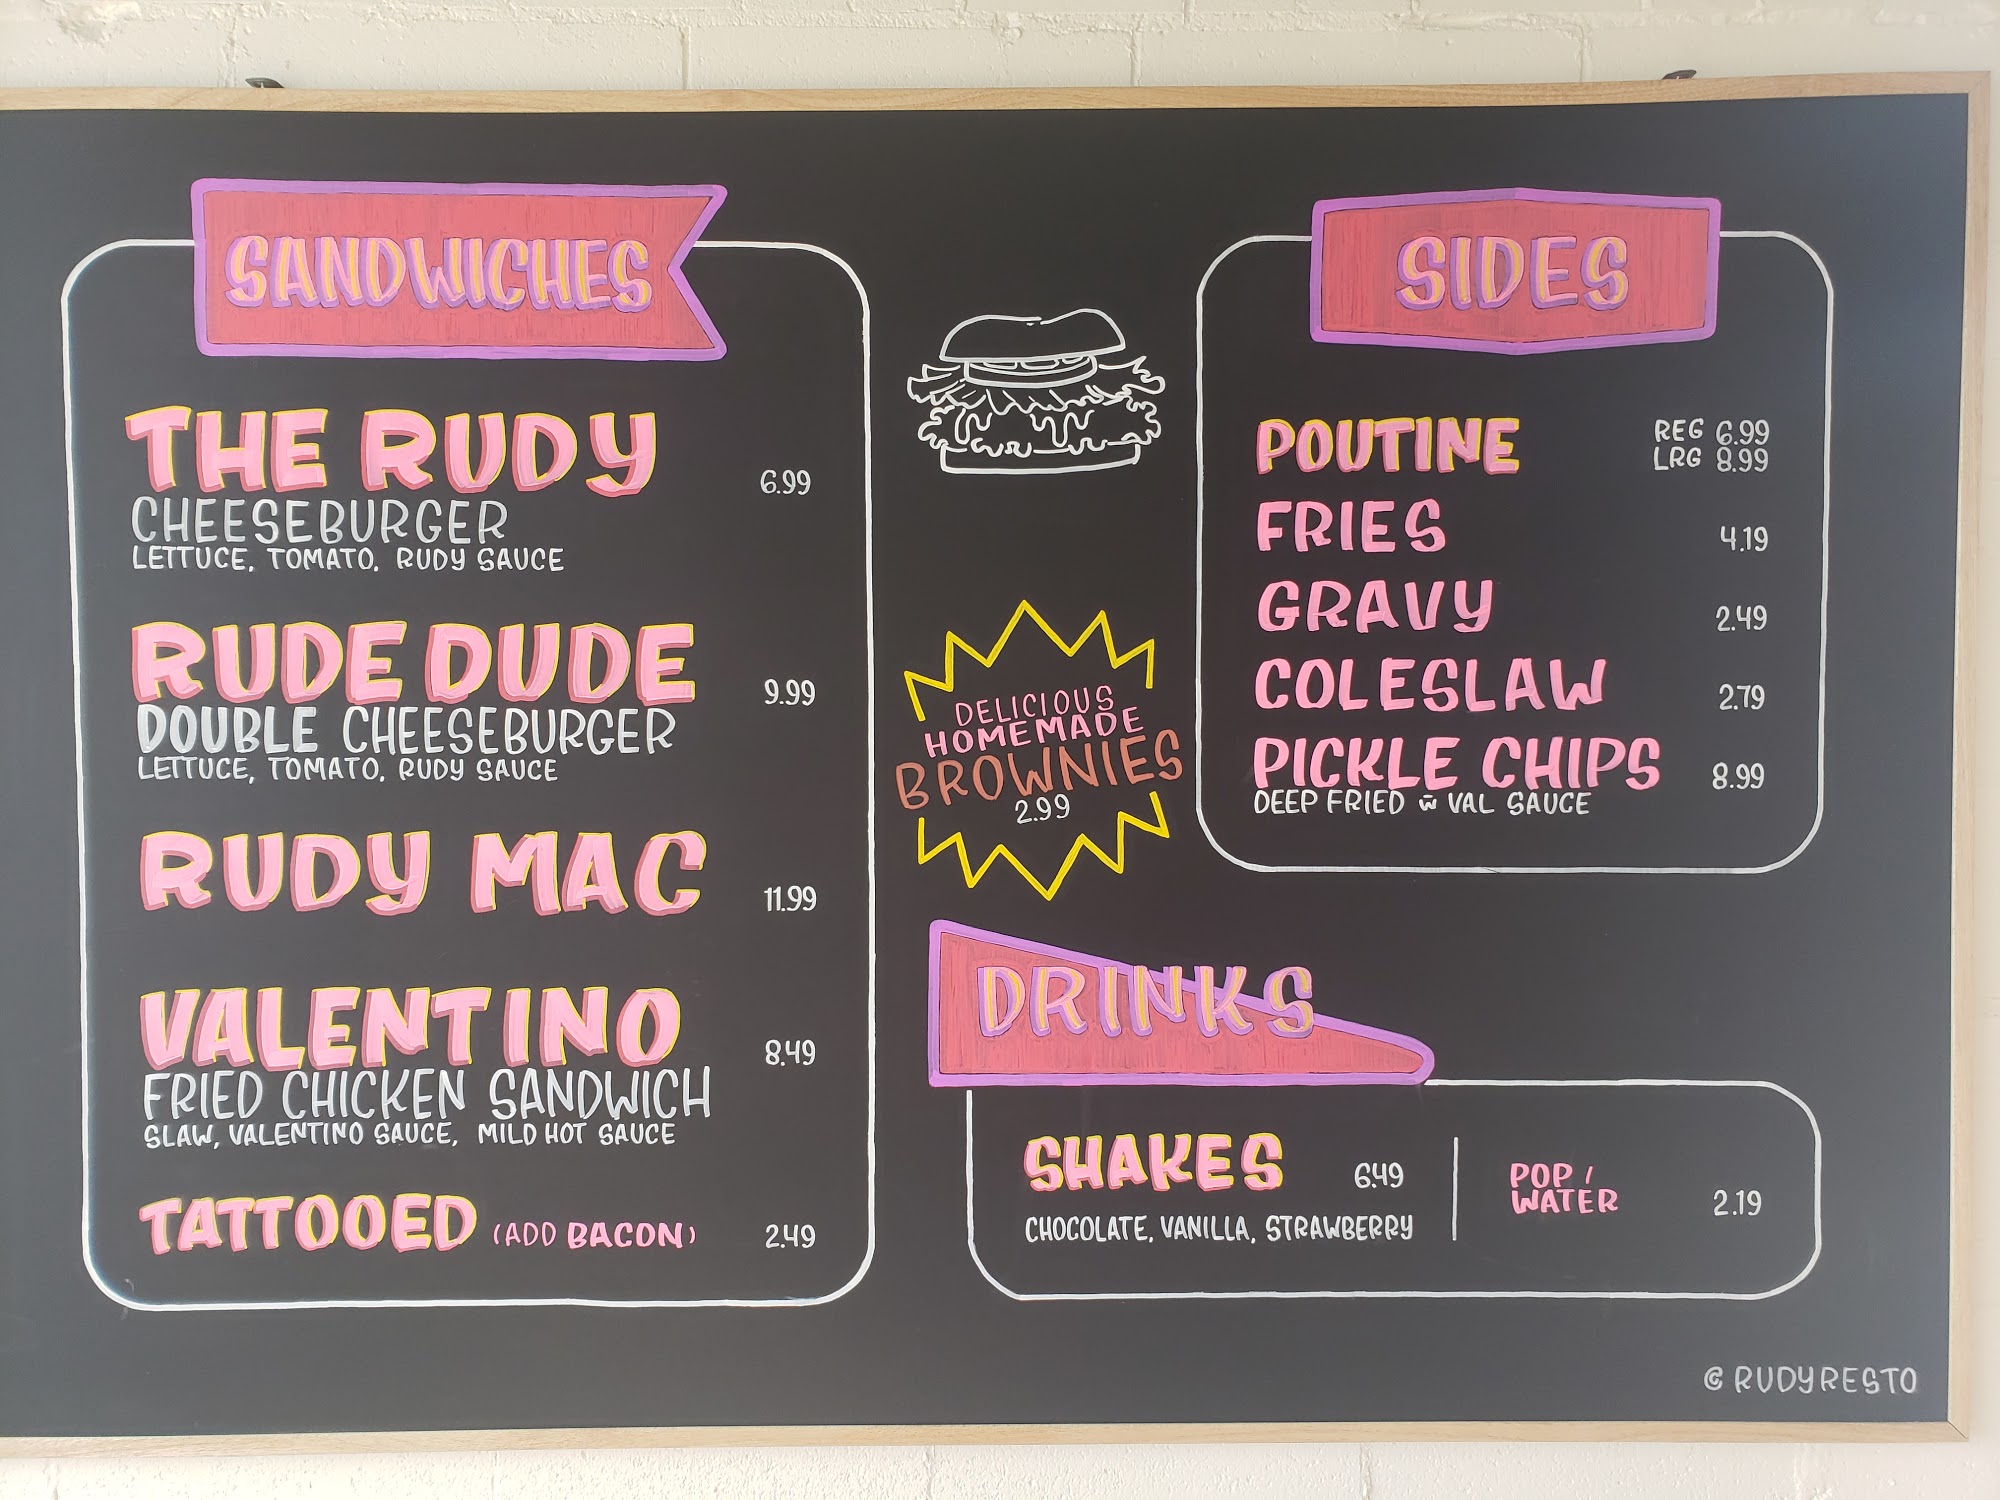 SANDWICHES
THE RUDY 6.99
CHEESEBURGER
LETTUCE, TOMATO, RUDY SAUCE
RUDE DUDE 9.99
DOUBLE CHEESEBURGER
LETTUCE, TOMATO, RUDY SAUCE
RUDY MAC 11.99
VALENTINO 8.49
FRIED CHICKEN SANDWICH
SLAW, VALENTINO SAUCE, MILD HOT SAUCE
TATTOOED (ADD BACON) 2.49
DELICIOUS
HOMEMADE
BROWNIES
2.99
SIDES
POUTINE REG 6.99
LRG 8.99
FRIES 4.19
GRAVY 2.49
COLESLAW 2.79
PICKLE CHIPS 8.99
DEEP FRIED w̄ VAL SAUCE
DRINKS
SHAKES 6.49
CHOCOLATE, VANILLA, STRAWBERRY
POP /
WATER 2.19
@RUDYRESTO